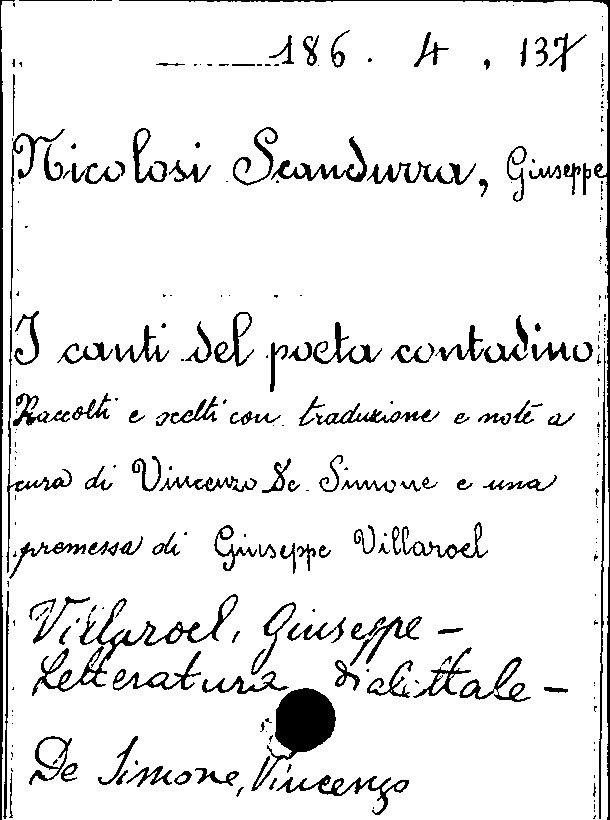 186. 4, 137
Nicolosi Scandurra, Giuseppe
I canti del poeta contadino
Raccolti e scelti con traduzione e note a
cura di Vincenzo De Simone e una
premessa di Giuseppe Villaroel
Villaroel, Giuseppe -
Letteratura dialettale -
De Simone, Vincenzo